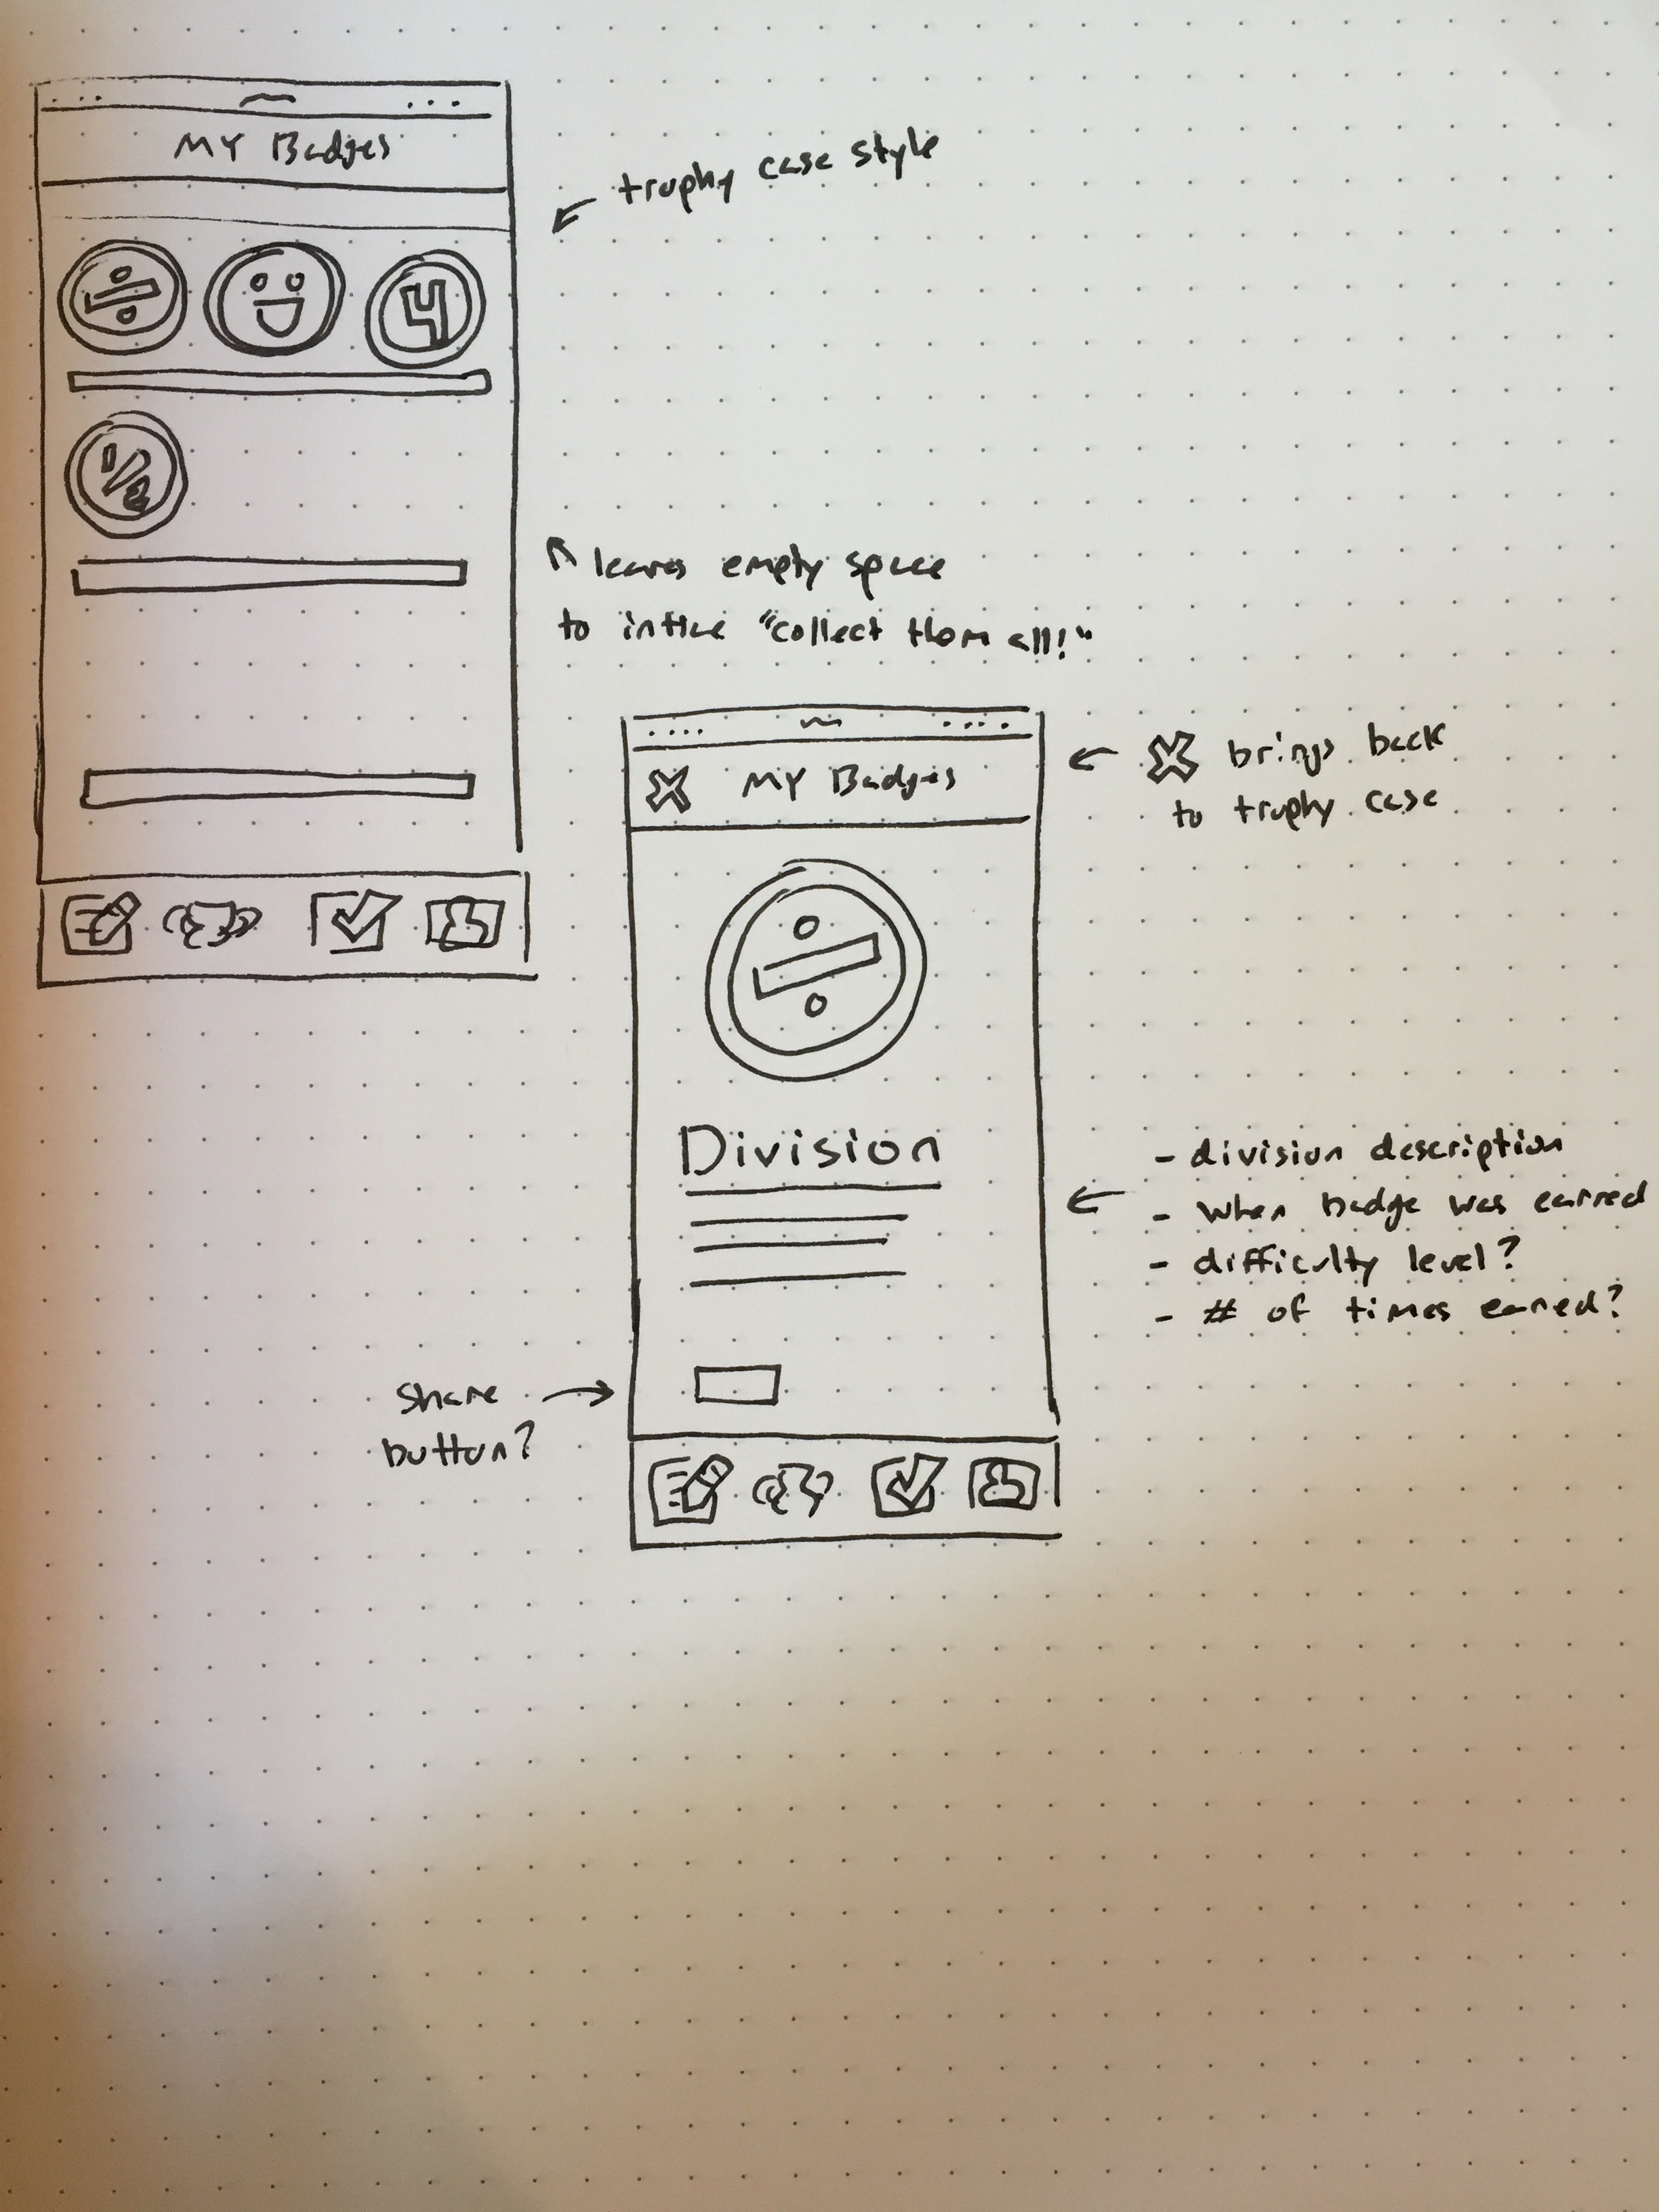 MY Badges
trophy case style
4
1/2
leaves empty space
to intice "collect them all!"
MY Badges
brings back
to trophy case
Division
- division description
- when badge was earned
- difficulty level?
- # of times earned?
share
button?